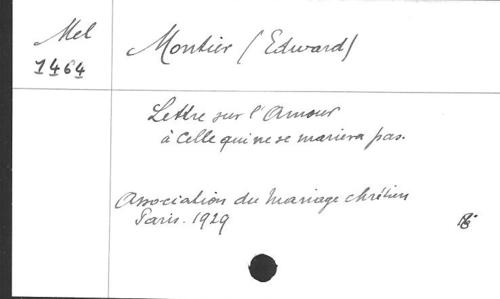 Mel
1464
Montier (Edward)
Lettre sur l'Amour
à celle qui ne se mariera pas.
Association du Mariage chrétien
Paris. 1929